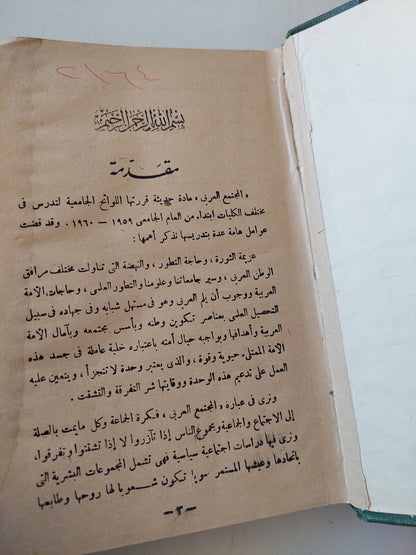 ٢١٦٤
بسم الله الرحمن الرحيم
مقدمة
« المجتمع العربى » مادة حديثة قررتها اللوائح الجامعية لتدرس فى
مختلف الكليات ابتداء من العام الجامعى ١٩٥٩ – ١٩٦٠ . وقد قضت
عوامل هامة عدة بتدريسها نذكر أهمها :
عزيمة الثورة ، وحاجة التطور ، والنهضة التى تناولت مختلف مرافق
الوطن العربى ، وسير جامعاتنا وعلومنا والتطور العلمى ، وحاجات الأمة
العربية ووجوب أن يلم العربى وهو فى مستهل شبابه وفى جهاده فى سبيل
التحصيل العلمى بعناصر تكوين وطنه وبأسس مجتمعه وبآمال الأمة
العربية وأهدافها وبواجبه حيال أمته باعتباره خلية عاملة فى جسد هذه
الأمة الممتلىء حيوية وقوة ، والذى يعتبر وحدة لا تتجزأ ، ويتعين عليه
العمل على تدعيم هذه الوحدة ووقايتها شر التفرقة والتشتت .
ونرى فى عبارة « المجتمع العربى » فكرة الجماعة وكل ما يمت بالصلة
إلى الاجتماع والجماعية وبجموع الناس إذا تآزروا لا إذا تشتتوا وتفرقوا ،
ونرى فيها دراسات اجتماعية سياسية فهى تشمل المجموعات البشرية التى
باتحادها وعيشها المستمر سويا تكون شعوبا لها روحها وطابعها
– ٣ –